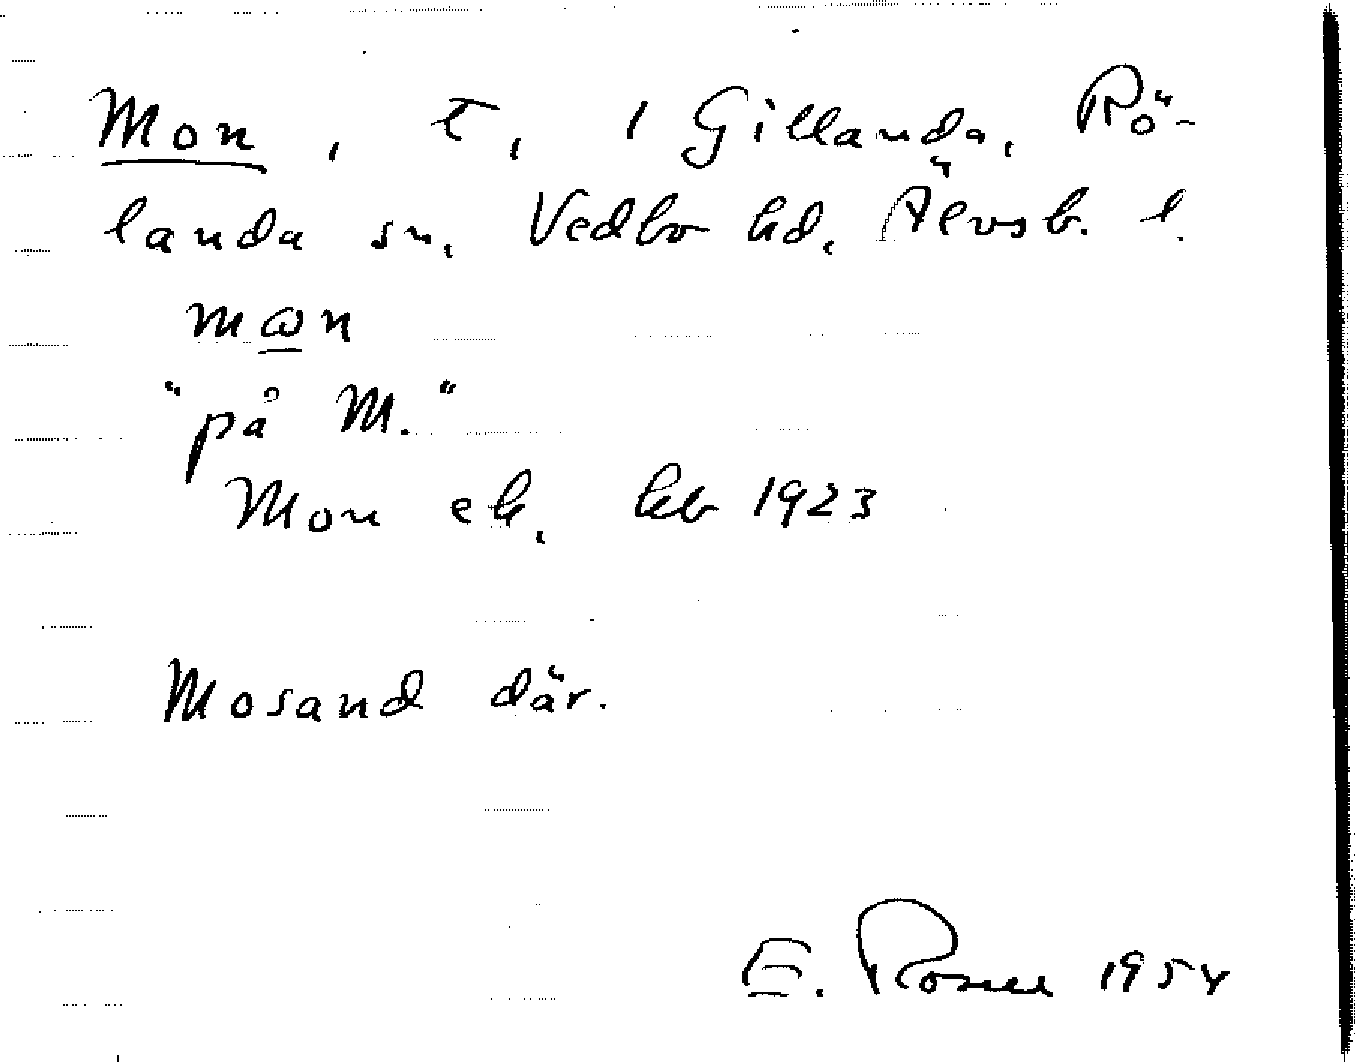 Mon, t, 1 Gillanda, Rö-
landa sn. Vedbo hd, Älvsb. l.
mɷn
"på M."
Mon ek. kb 1923
Mosand där.
E. Rosell 1954